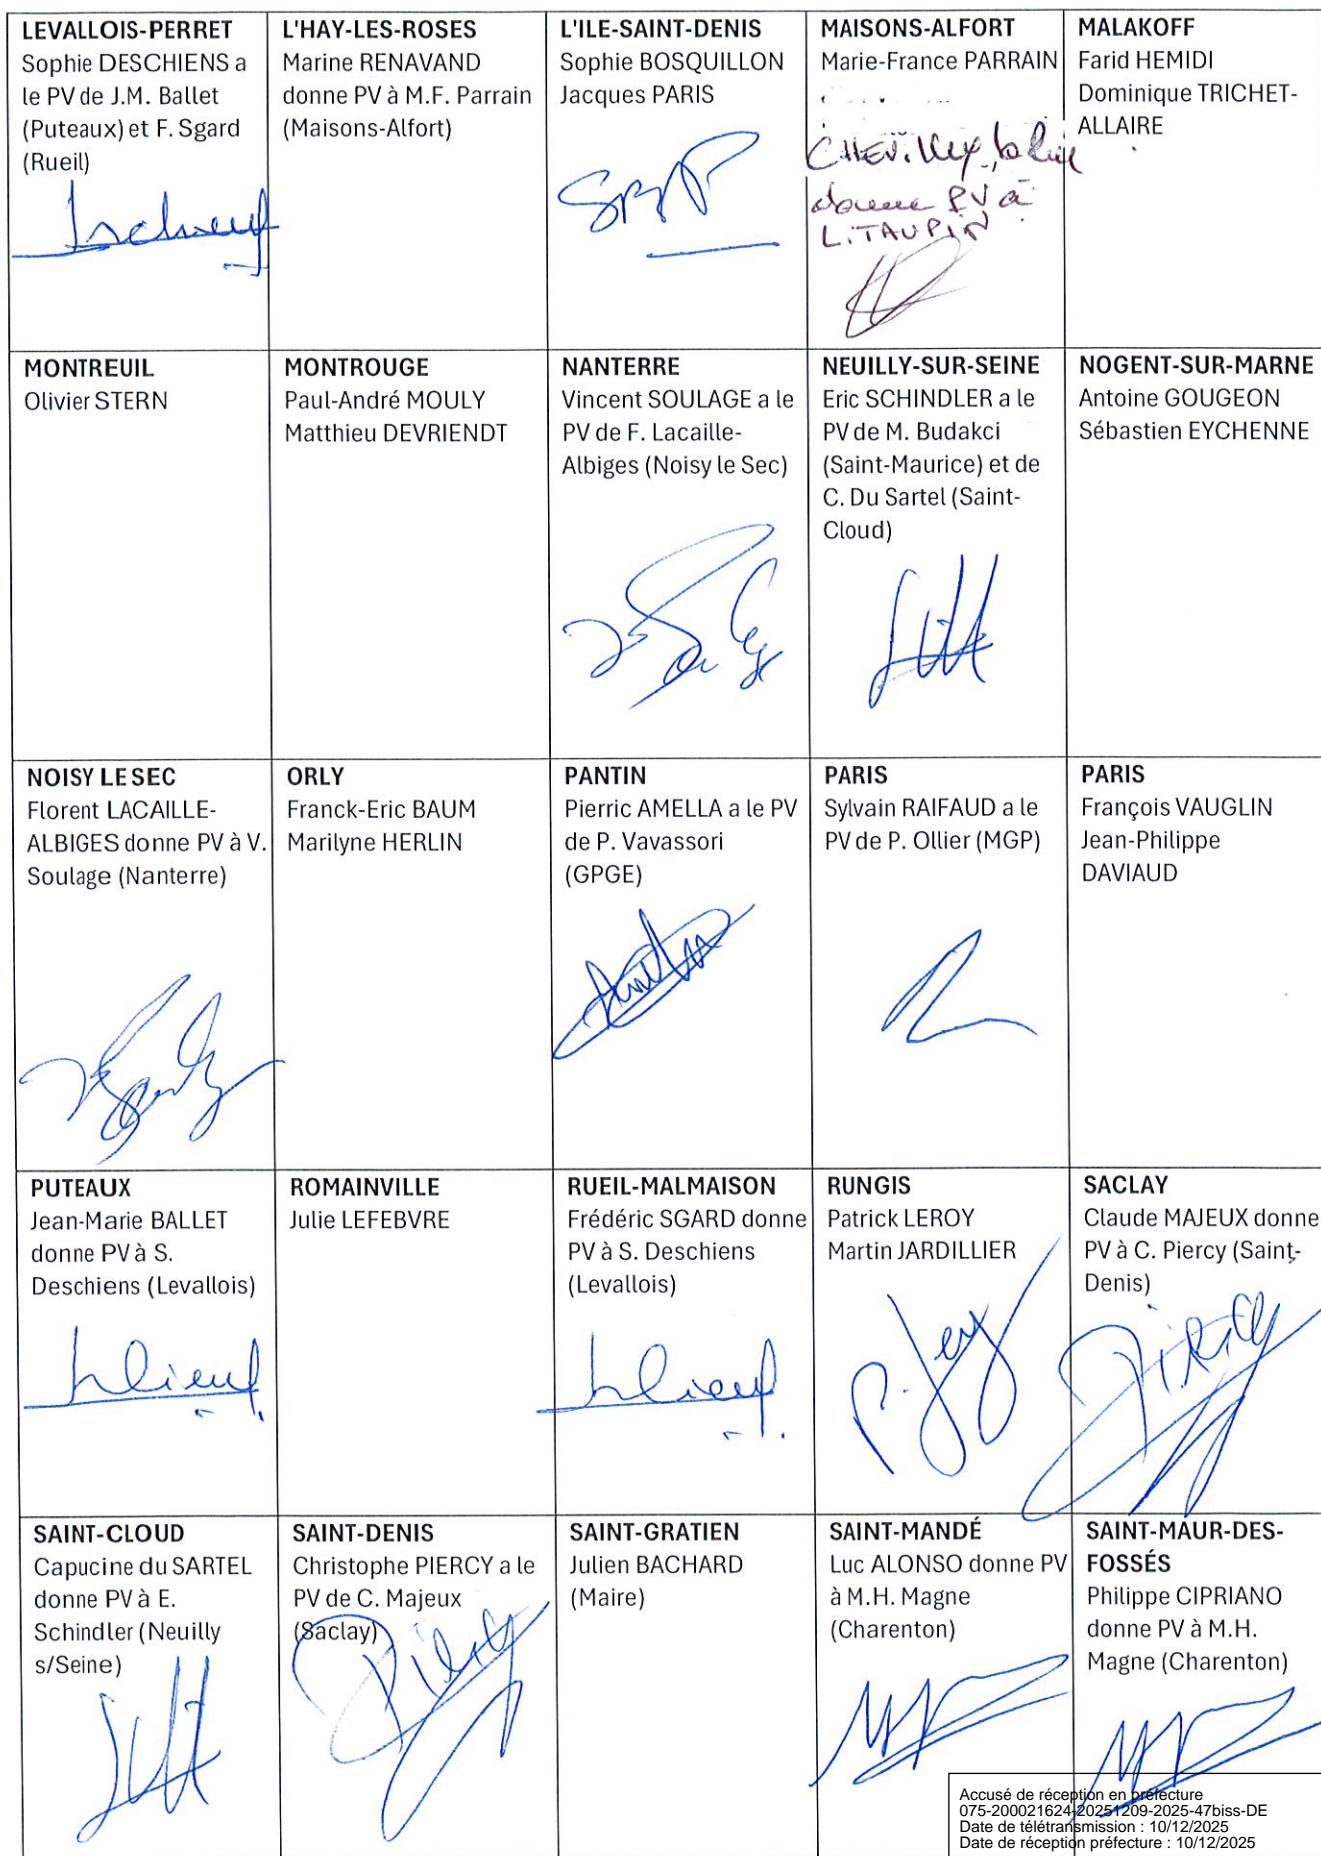 LEVALLOIS-PERRET
Sophie DESCHIENS a
le PV de J.M. Ballet
(Puteaux) et F. Sgard
(Rueil)
L'HAY-LES-ROSES
Marine RENAVAND
donne PV à M.F. Parrain
(Maisons-Alfort)
L'ILE-SAINT-DENIS
Sophie BOSQUILLON
Jacques PARIS
MAISONS-ALFORT
Marie-France PARRAIN
donne PV à
L. TAUPIN
MALAKOFF
Farid HEMIDI
Dominique TRICHET-
ALLAIRE
MONTREUIL
Olivier STERN
MONTROUGE
Paul-André MOULY
Matthieu DEVRIENDT
NANTERRE
Vincent SOULAGE a le
PV de F. Lacaille-
Albiges (Noisy le Sec)
NEUILLY-SUR-SEINE
Eric SCHINDLER a le
PV de M. Budakci
(Saint-Maurice) et de
C. Du Sartel (Saint-
Cloud)
NOGENT-SUR-MARNE
Antoine GOUGEON
Sébastien EYCHENNE
NOISY LE SEC
Florent LACAILLE-
ALBIGES donne PV à V.
Soulage (Nanterre)
ORLY
Franck-Eric BAUM
Marilyne HERLIN
PANTIN
Pierric AMELLA a le PV
de P. Vavassori
(GPGE)
PARIS
Sylvain RAIFAUD a le
PV de P. Ollier (MGP)
PARIS
François VAUGLIN
Jean-Philippe
DAVIAUD
PUTEAUX
Jean-Marie BALLET
donne PV à S.
Deschiens (Levallois)
ROMAINVILLE
Julie LEFEBVRE
RUEIL-MALMAISON
Frédéric SGARD donne
PV à S. Deschiens
(Levallois)
RUNGIS
Patrick LEROY
Martin JARDILLIER
SACLAY
Claude MAJEUX donne
PV à C. Piercy (Saint-
Denis)
SAINT-CLOUD
Capucine du SARTEL
donne PV à E.
Schindler (Neuilly
s/Seine)
SAINT-DENIS
Christophe PIERCY a le
PV de C. Majeux
(Saclay)
SAINT-GRATIEN
Julien BACHARD
(Maire)
SAINT-MANDÉ
Luc ALONSO donne PV
à M.H. Magne
(Charenton)
SAINT-MAUR-DES-
FOSSÉS
Philippe CIPRIANO
donne PV à M.H.
Magne (Charenton)
Accusé de réception en préfecture
075-200021624-20251209-2025-47biss-DE
Date de télétransmission : 10/12/2025
Date de réception préfecture : 10/12/2025